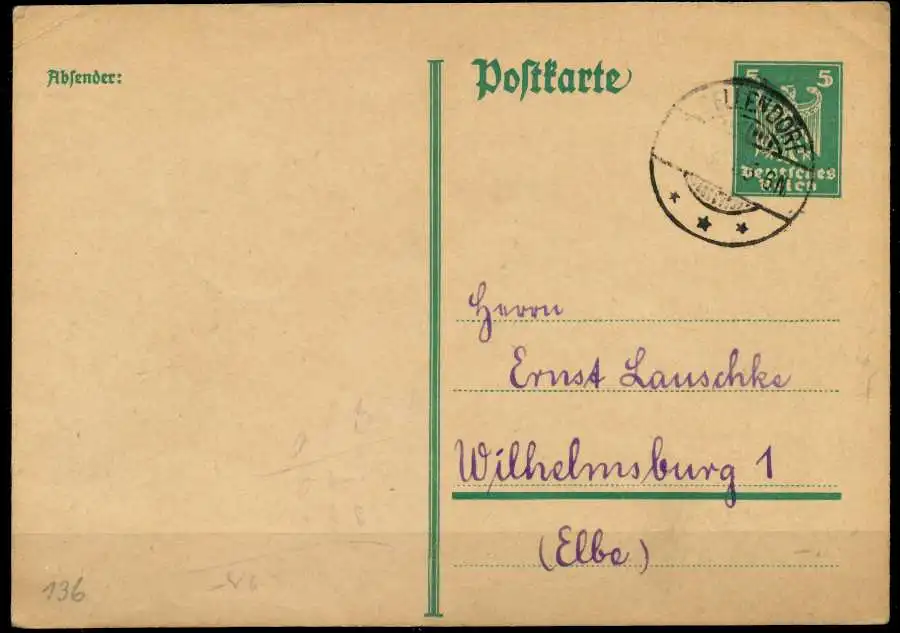 Absender:
Postkarte
5 5
Deutsches
Reich
ELLENDORF
5-6N
Herrn
Ernst Lauschke
Wilhelmsburg 1
(Elbe)
136